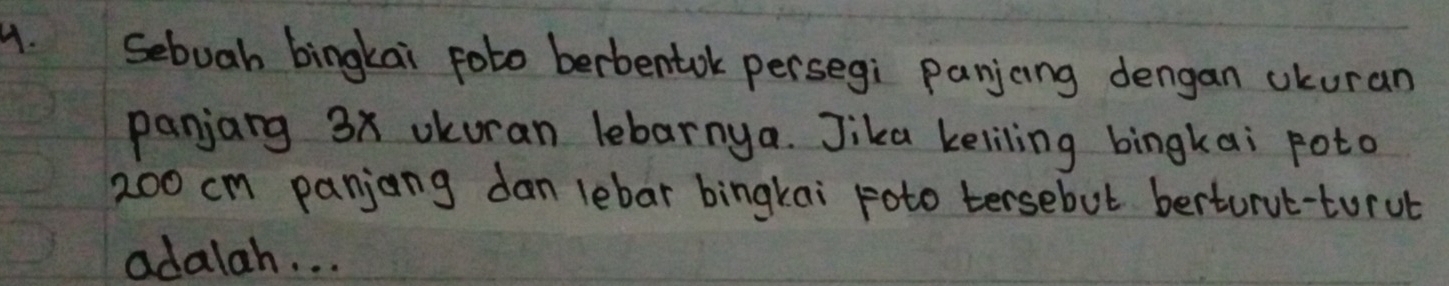 4. Sebuah bingkai foto berbentuk persegi panjang dengan ukuran
panjang 3x ukuran lebarnya. Jika keliling bingkai foto
200 cm panjang dan lebar bingkai foto tersebut berturut-turut
adalah...